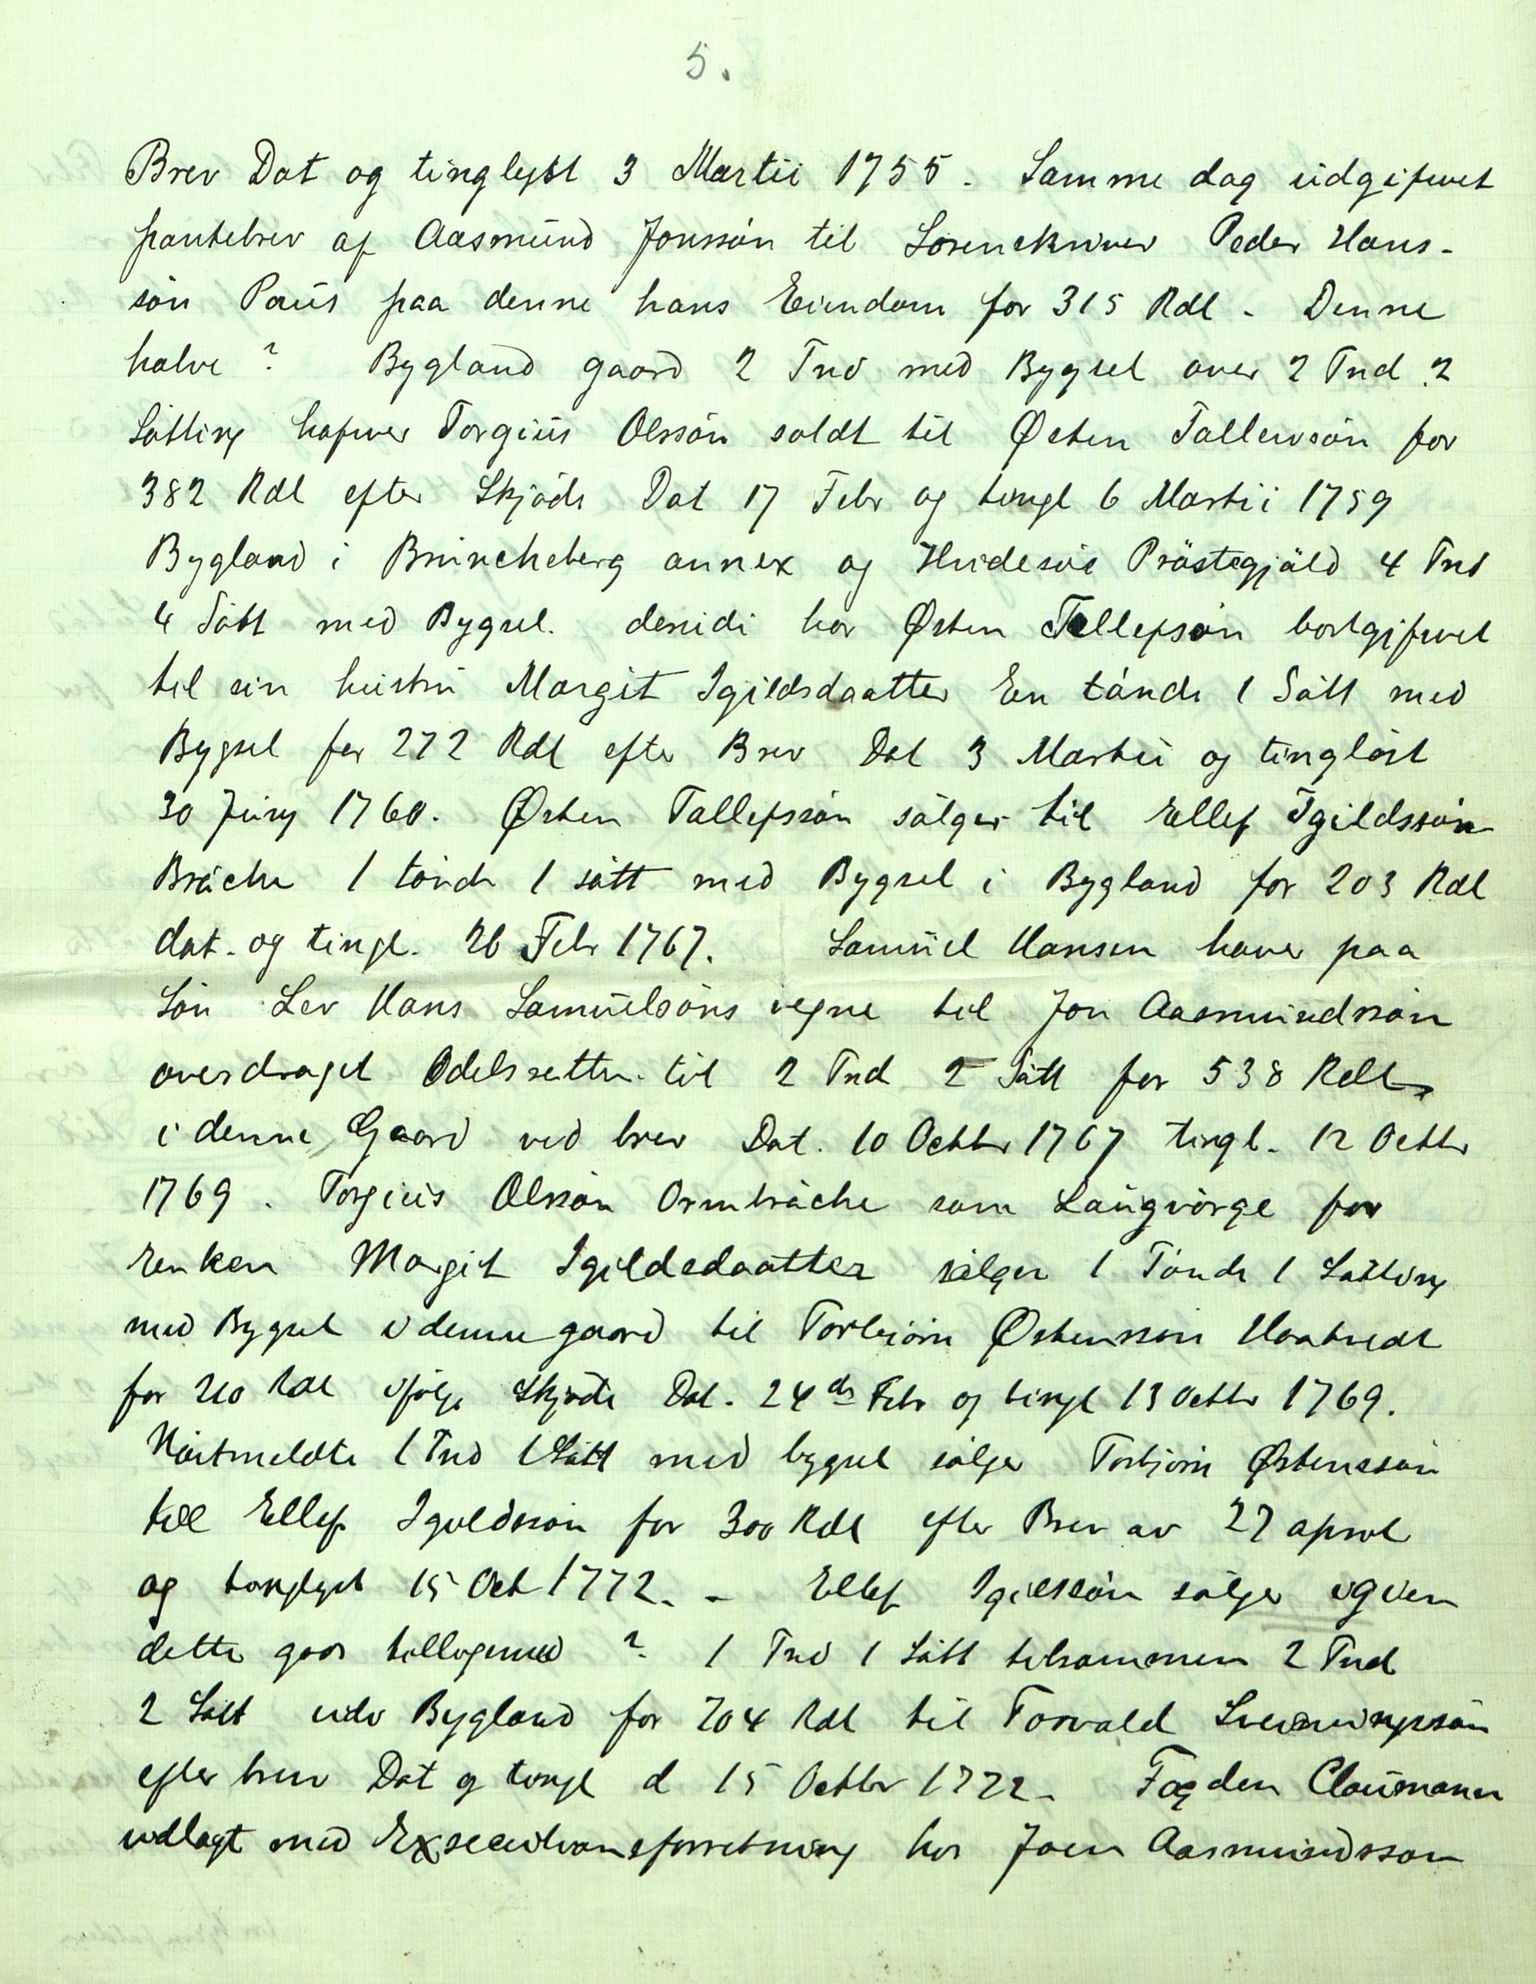 5.
Brev Dat og tinglyst 3 Martii 1755. Samme dag üdgifvet
pantebrev af Aasmünd Jonssön til Sorenskriver Peder Hans-
sön Paüs paa denne hans Eiendom for 315 Rdl. Denne
halve ? Bygland gaard 2 Tnd med Bygsel over 2 Tnd 2
Sätting hafver Torgiüs Olssön soldt til Østen Tallevsön for
382 Rdl efter Skjöde Dat 17 Febr og tingl 6 Martii 1759
Bygland i Brüncheberg annex og Hvidesöe Prästegjäld 4 Tnd
4 Sätt med Bygsel. har Østen Tellefsön bortgifvet
til sin hüstrü Margit Igildsdaatter En tönde 1 Sätt med
Bygsel for 272 Rdl efter Brev Dat 3 Martii og tinglöst
30 Juny 1760. Østen Tallefssön sälger til Ellef Igildssön
Bräche 1 tönde 1 sätt med Bygsel i Bygland for 203 Rdl
dat. og tingl. 26 Febr 1767. Samüel Hansen haver paa
Sön Lev Hans Samüelsöns vegne til Jon Aasmundssön
overdraget Odelsretten til 2 Tnd 2 Sätt for 538 Rdl
i denne Gaard ved brev Dat. 10 Octbr 1767 tingl. 12 Octbr
1769. Torgiüs Olssön Ormbräche som Laügvärge for
Enken Margit Igildsdaatter sälger 1 Tönde 1 Sätting
med Bygsel i denne gaard til Torbiörn Østenssön Haatvedt
for 210 Rdl ifölge Skjöde Dat. 24de Febr og tingl 13 Octbr 1769.
Nästmeldte 1 Tnd 1 Sätt med bygsel sälger Torbjörn Østenssön
till Ellef Igildssön for 300 Rdl efter Brev av 27 april
og tinglyst 15 Oct 1772. - Ellef Igilssön sälger igien
dette gods tilligemed ? 1 Tnd 1 Sätt tilsammen 2 Tnd
2 Sätt üdi Bygland for 704 Rdl til Torvald Sveinüngssön
efter brev Dat og tingl d 15 Octbr 1772. Fogden Claümann
üdlagt med Execütionsforretning hos Joen Aasmündsson